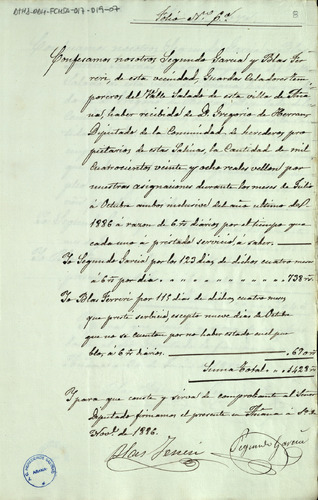 ATHA-DAH-FCHSA-017-019-07
8
Folio Nº
Confesamos nosotros Segundo Garcia y Blas Fe-
rreri, de esta vecindad, Guardas Celadores tem-
poreros del Valle Salado de esta villa de Aña-
na, haber recibido de D. Gregorio de Herran,
Diputado de la Comunidad de herederos pro-
pietarios de estas Salinas, la Cantidad de mil
Cuatrocientos veinte y ocho reales vellon por
nuestras asignaciones durante los meses de Julio
á Octubre ambos inclusive del año ultimo de
1886 á razon de 6 rs diarios por el tiempo que
cada uno á prestado servicio, á saber.
Yo Segundo Garcia por los 123 dias de dichos cuatro meses
á 6 rs por dia. 738 rs
Yo Blas Ferreri por 115 dias de dichos cuatro meses
que presté servicio, escepto nueve dias de Octubre
que no se cuentan por no haber estado en el pue-
blo, á 6 rs diarios. 690 rs
Suma total 1428 rs
Y para que conste y sirva de comprobante al Señor
Diputado firmamos el presente en Añana á
Novbre de 1886.
Blas Ferreri Segundo Garcia